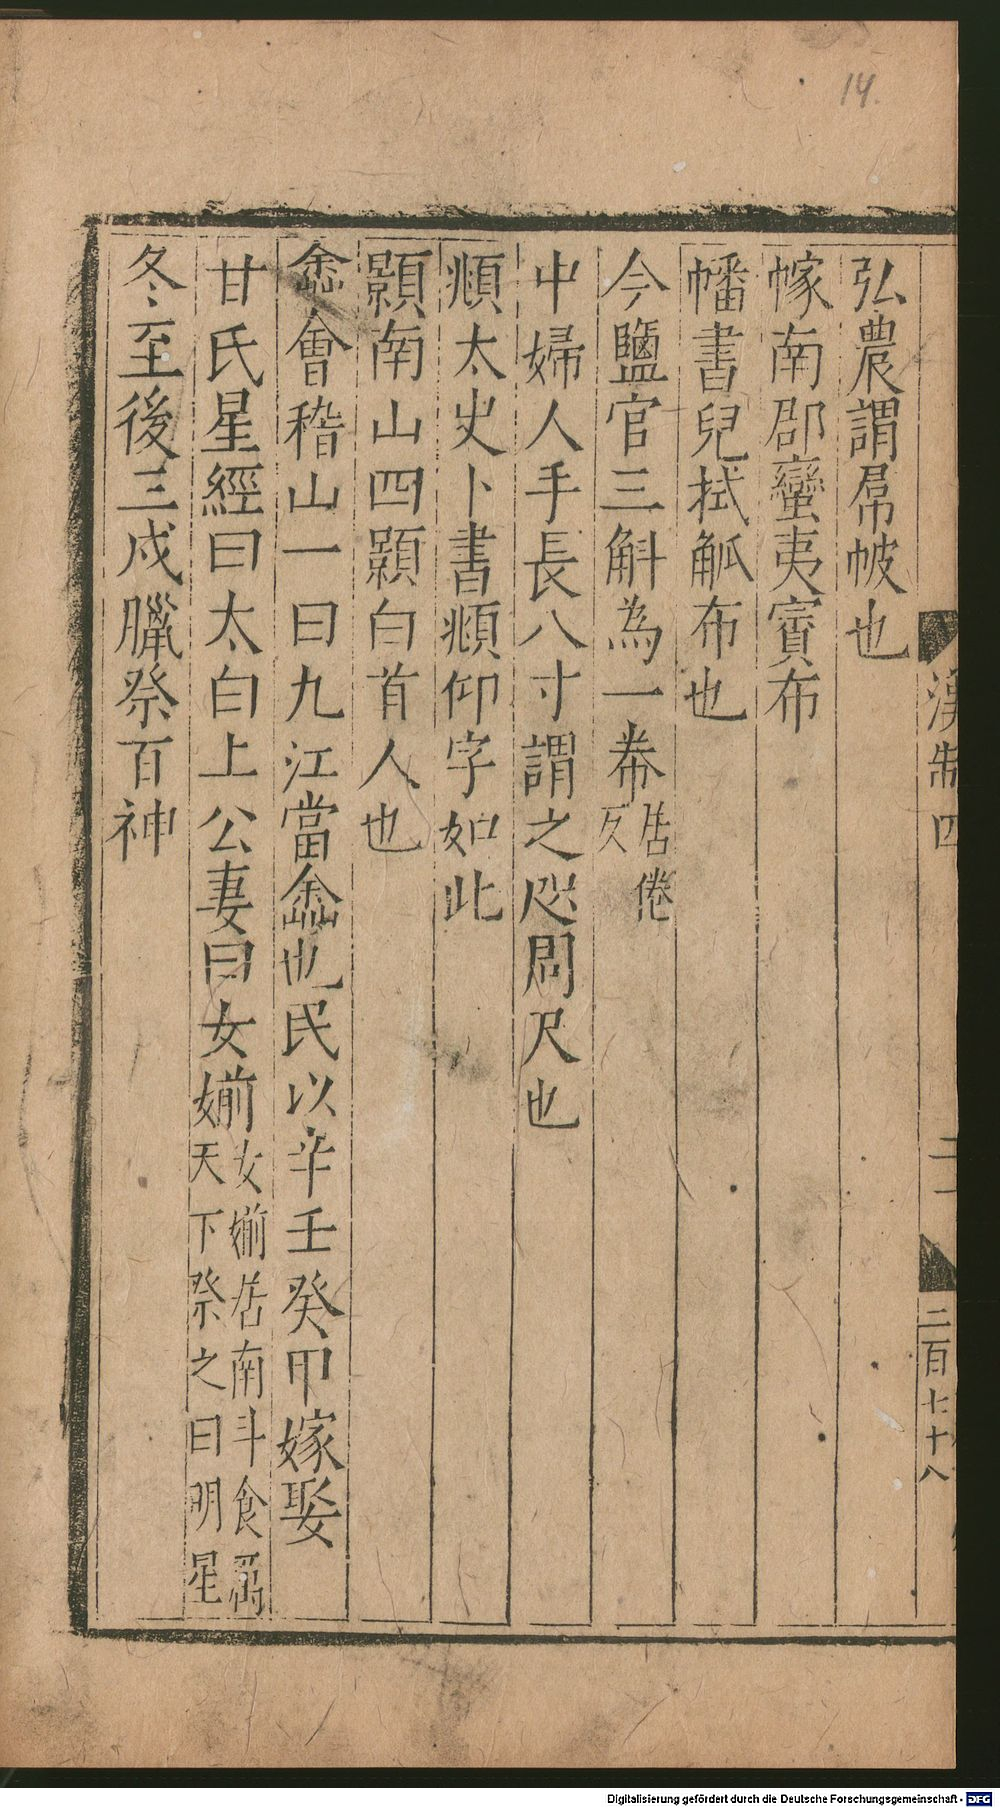 14.
漢制四
二百七十八
弘農謂帬帔也
幏南郡蠻夷賨布
幡書兒拭觚布也
今鹽官三斛為一𢍏居倦反
中婦人手長八寸謂之咫周尺也
頫太史卜書頫仰字如此
顥南山四顥白首人也
嵞會稽山一曰九江當嵞也民以辛壬癸甲嫁娶
甘氏星經曰太白上公妻曰女媊女媊居南斗食厲天下祭之曰明星
冬至後三戌臘祭百神
Digitalisierung gefördert durch die Deutsche Forschungsgemeinschaft - DFG